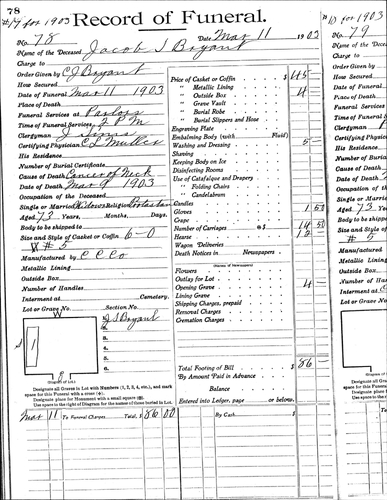 78
#17 for 1903 Record of Funeral.
No. 78 Date Mar 11 1903
Name of the Deceased Jacob S Bryant
Charge to
Order Given by C J Bryant
How Secured
Date of Funeral Mar 11 1903
Place of Death
Funeral Services at Parlors
Time of Funeral Services 2 P M
Clergyman
Certifying Physician C L Muller
His Residence
Number of Burial Certificate
Cause of Death Cancer of Neck
Date of Death Mar 9 1903
Occupation of the Deceased
Single or Married Widower Religion Protestant
Aged 73 Years, Months, Days.
Body to be shipped to
Size and Style of Casket or Coffin 6-0
# 5
Manufactured by C C Co
Metallic Lining
Outside Box
Number of Handles
Interment at Cemetery.
Lot or Grave No. Section No.
J S Bryant
1
(Diagram of Lot.)
Designate all Graves in Lot with Numbers (1, 2, 3, 4, etc.), and mark
space for this Funeral with a cross (+).
Designate place for Monument with a small square
Use space to the right of Diagram for the names of those buried in Lot.
Price of Casket or Coffin $ 45 -
" Metallic Lining
" Outside Box 4 -
" Grave Vault
" Burial Robe
" Burial Slippers and Hose
Engraving Plate
Embalming Body (with Fluid) 5 -
Washing and Dressing
Shaving
Keeping Body on Ice
Disinfecting Rooms
Use of Catafalque and Drapery
" Folding Chairs
" Candelabrum
Candles
Gloves 1 50
Crape
Number of Carriages @ $ 14 50
Hearse
Wagon Deliveries
Death Notices in Newspapers
Flowers
Outlay for Lot
Opening Grave 4 -
Lining Grave
Shipping Charges, prepaid
Removal Charges
Cremation Charges
Total Footing of Bill $ 86 -
By Amount Paid in Advance
Balance
Entered into Ledger, page or below.
Mar 11 To Funeral Charges Total, $ 86 00 By Cash $
#10 for 1903
No. 79
Name of the
Charge to
Order Given
How Secured
Date of Funeral
Place of Death
Funeral
Time of
Clergyman
Certifying
His Residence
Number of
Cause of
Date of Death
Occupation
Single or
Aged 73
Body to be
Size and
# 5
Manufactured
Metallic
Outside
Number
Interment
Lot or Grave